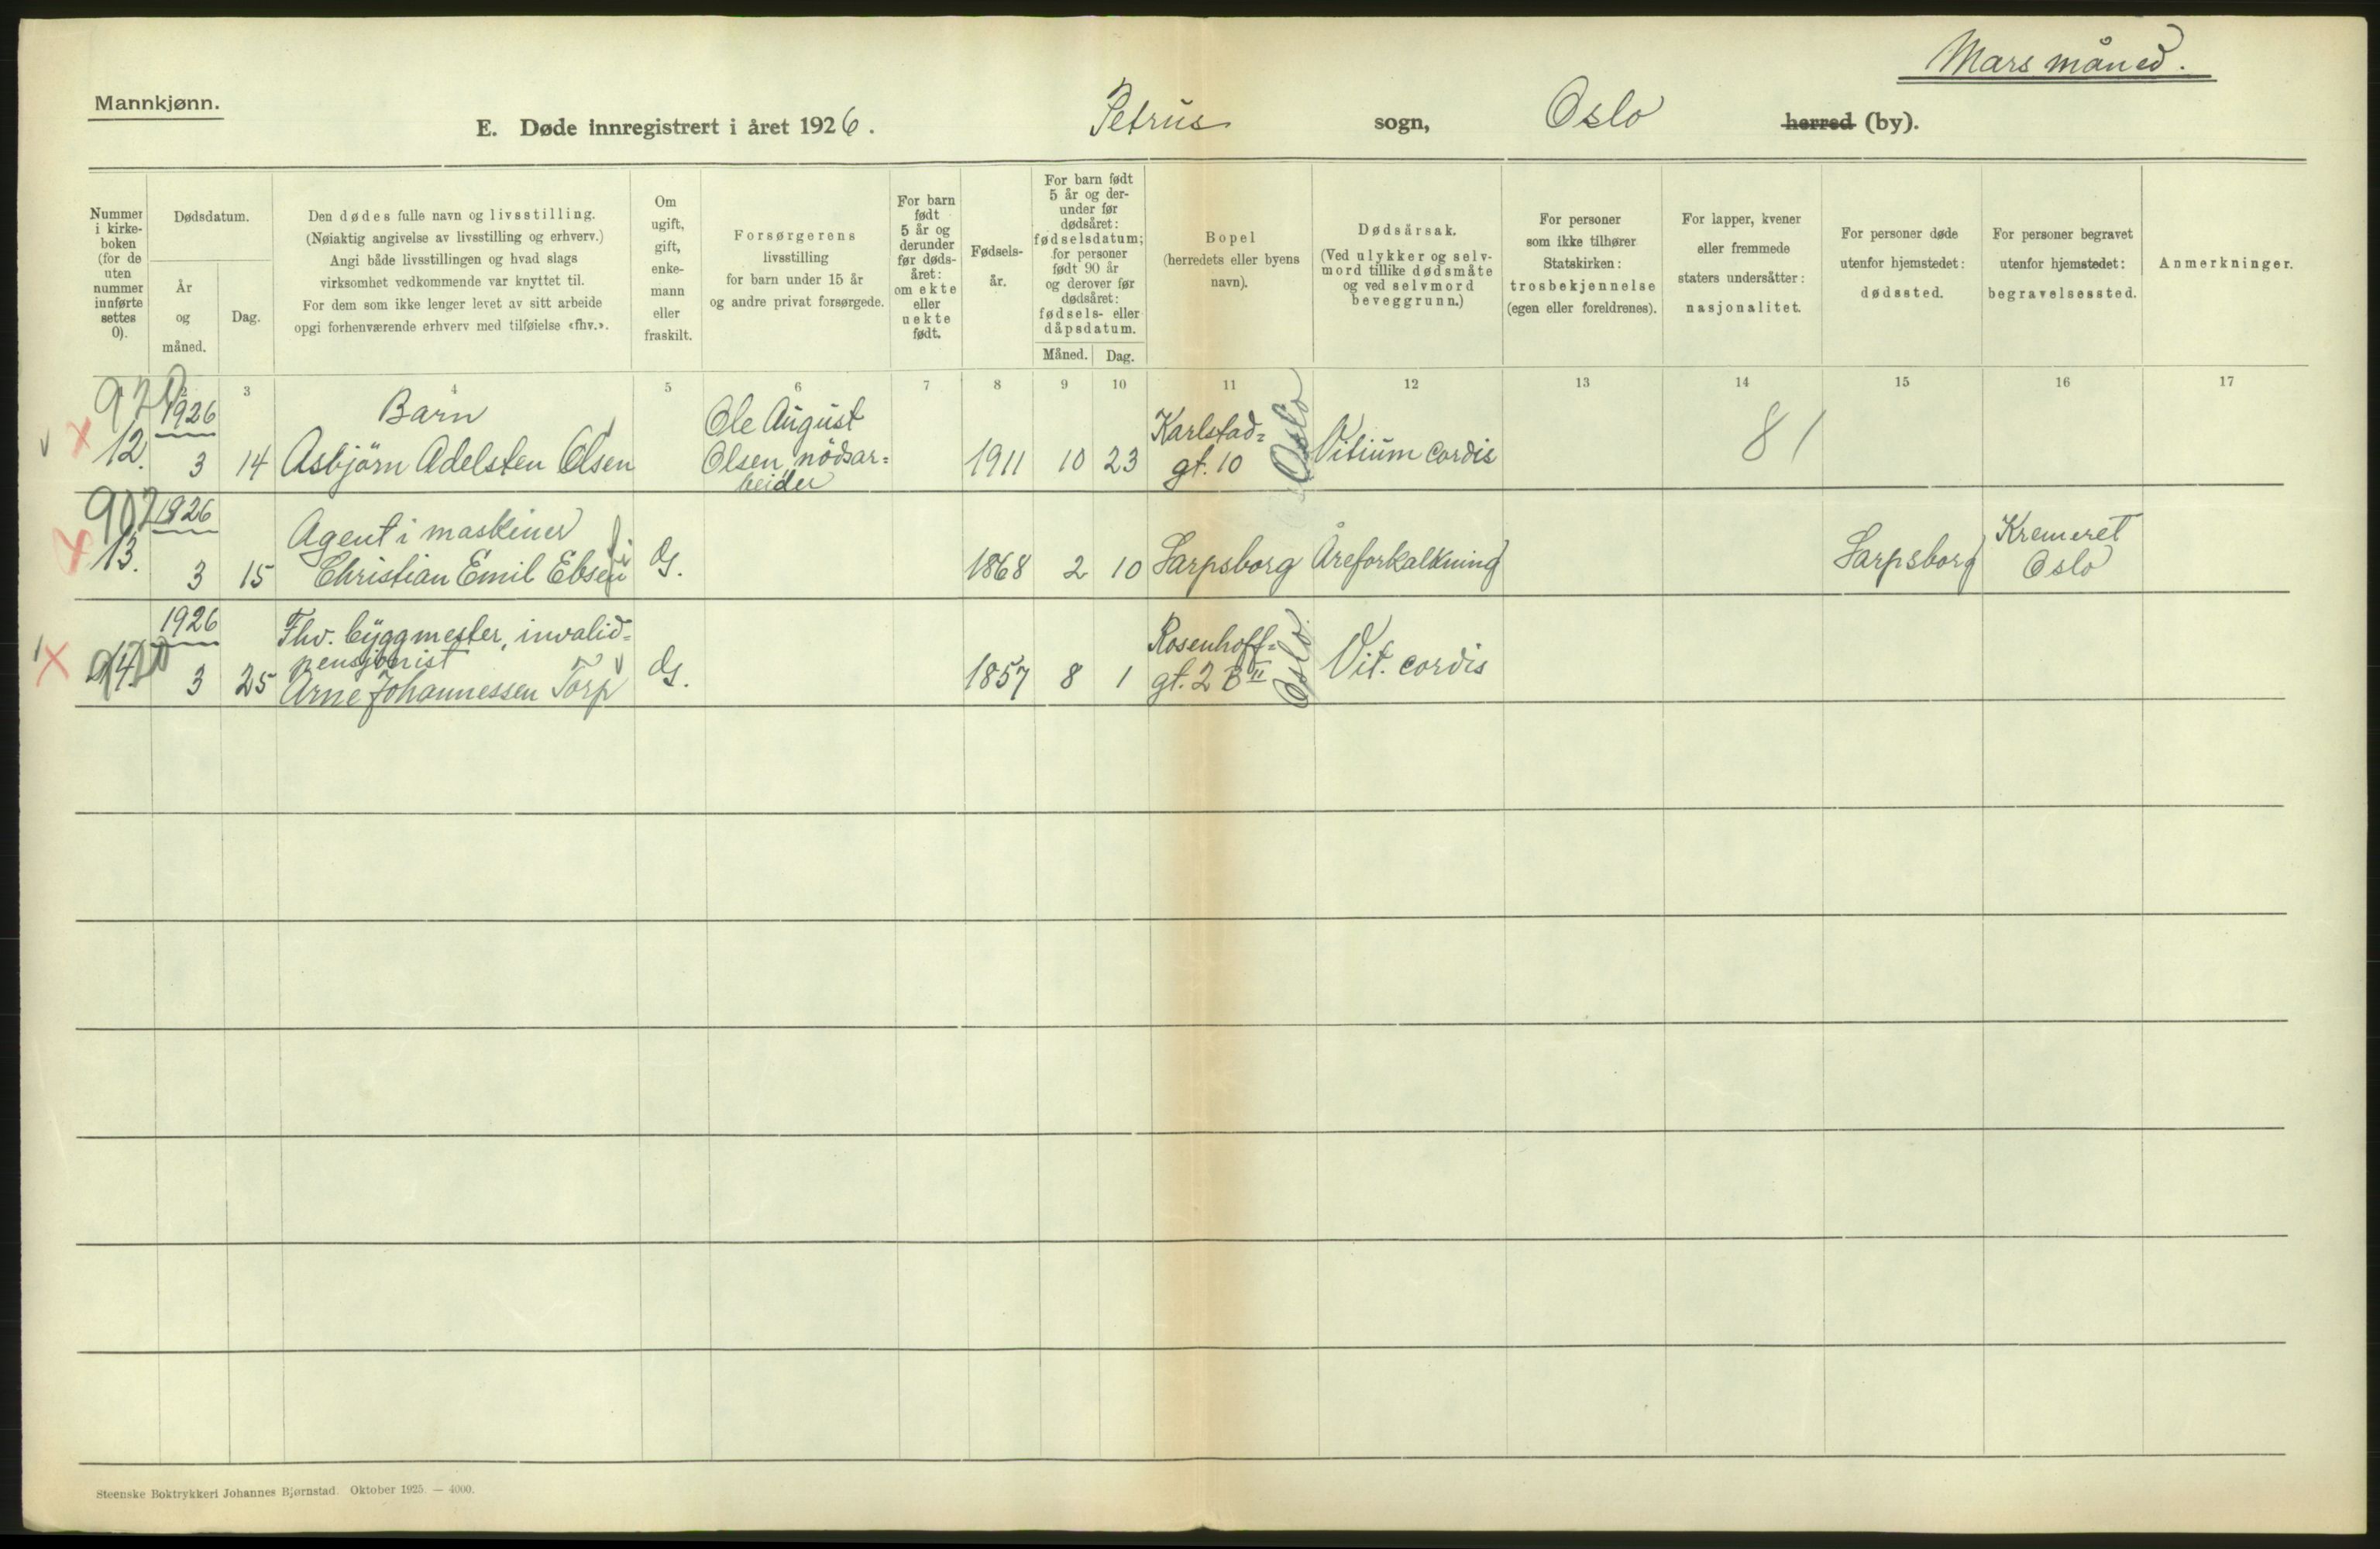 Mars måned.
Mannkjønn.
E. Døde innregistrert i året 1926. Petrus sogn, Oslo herred (by).
Nummer i kirke-boken (for de uten nummer innførte settes 0).
Dødsdatum.
År og måned.
Dag.
Den dødes fulle navn og livsstilling.
(Nøiaktig angivelse av livsstilling og erhverv.)
Angi både livsstillingen og hvad slags
virksomhet vedkommende var knyttet til.
For dem som ikke lenger levet av sitt arbeide
opgi forhenværende erhverv med tilføielse «fhv.».
Om ugift, gift, enke-mann eller fraskilt.
Forsørgerens
livsstilling
for barn under 15 år
og andre privat forsørgede.
For barn født 5 år og derunder før døds-året: om ekte eller uekte født.
Fødsels-år.
For barn født 5 år og der-under før dødsåret: fødselsdatum; for personer født 90 år og derover før dødsåret: fødsels- eller dåpsdatum.
Måned. Dag.
Bopel
(herredets eller byens
navn).
Dødsårsak.
(Ved ulykker og selv-
mord tillike dødsmåte
og ved selvmord
beveggrunn.)
For personer
som ikke tilhører
Statskirken:
trosbekjennelse
(egen eller foreldrenes).
For lapper, kvener
eller fremmede
staters undersåtter:
nasjonalitet.
For personer døde
utenfor hjemstedet:
dødssted.
For personer begravet
utenfor hjemstedet:
begravelsessted.
Anmerkninger.
2 3 4 5 6 7 8 9 10 11 12 13 14 15 16 17
1926 Barn Ole August Karlstad=
12. 3 14 Asbjörn Adelsten Olsen Olsen, nödsar= 1911 10 23 gt. 10 Oslo Vitium cordis 81
beider
907 1926 Agent i maskiner Kremeret
13. 3 15 Christian Emil Ebsen G. 1868 2 10 Sarpsborg Åreforkalkning Sarpsborg Oslo
1926 Fhv. byggmester, invalid= Rosenhoff=
pensjonist
14. 3 25 Arne Johannessen Torp G. 1857 8 1 gt. 2 B II Oslo Vit. cordis
Steenske Boktrykkeri Johannes Bjørnstad. Oktober 1925. — 4000.